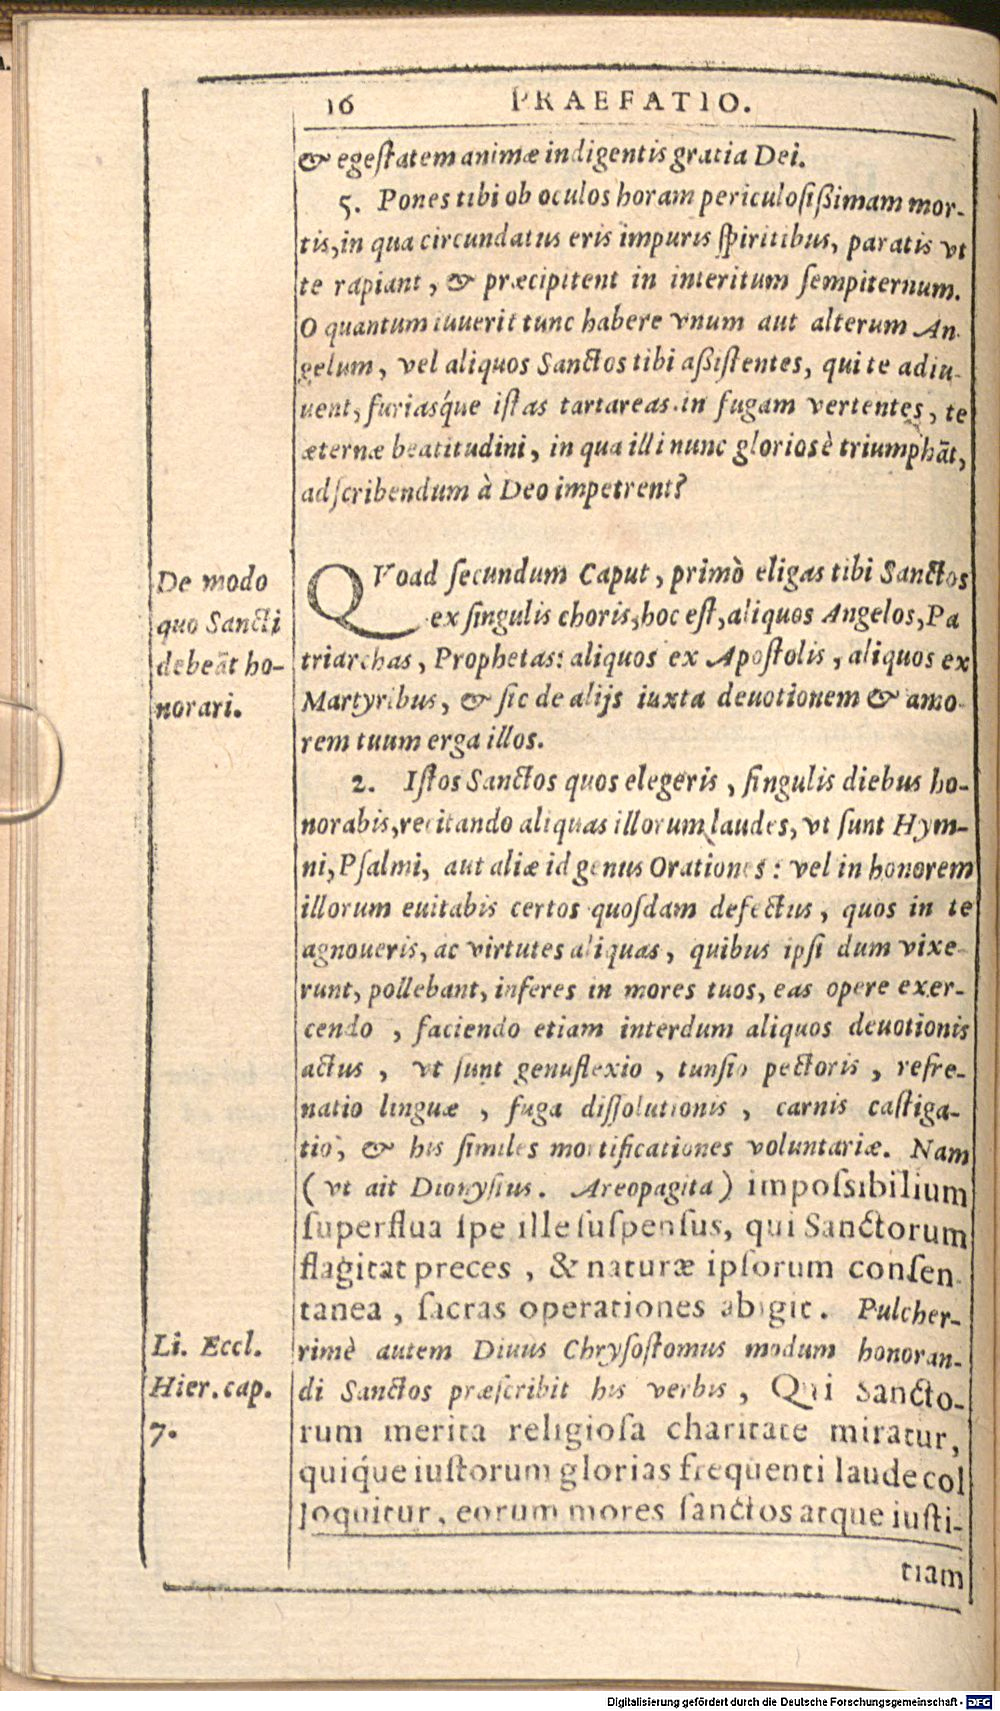 16 PRAEFATIO.
& egeſtatem animæ indigentis gratia Dei.
5. Pones tibi ob oculos horam periculoſiſsimam mor-
tis, in qua circundatus eris impuris ſpiritibus, paratis vt
te rapiant, & præcipitent in interitum ſempiternum.
O quantum iuuerit tunc habere vnum aut alterum An-
gelum, vel aliquos Sanctos tibi aſsiſtentes, qui te adiu-
uent, furiasq́ue iſtas tartareas in fugam vertentes, te
æternæ beatitudini, in qua illi nunc gloriosè triumphāt,
adſcribendum à Deo impetrent?
De modo
quo Sancti
debeāt ho-
norari.
QVoad ſecundum Caput, primò eligas tibi Sanctos
ex ſingulis choris, hoc eſt, aliquos Angelos, Pa
triarchas, Prophetas: aliquos ex Apoſtolis, aliquos ex
Martyribus, & ſic de alijs iuxta deuotionem & amo-
rem tuum erga illos.
2. Iſtos Sanctos quos elegeris, ſingulis diebus ho-
norabis, recitando aliquas illorum laudes, vt ſunt Hym-
ni, Pſalmi, aut aliæ id genus Orationes: vel in honorem
illorum euitabis certos quoſdam defectus, quos in te
agnoueris, ac virtutes aliquas, quibus ipſi dum vixe-
runt, pollebant, inferes in mores tuos, eas opere exer-
cendo, faciendo etiam interdum aliquos deuotionis
actus, vt ſunt genuflexio, tunſio pectoris, refre-
natio linguæ, fuga diſſolutionis, carnis caſtiga-
tio, & his ſimiles mortificationes voluntariæ. Nam
(vt ait Dionyſius. Areopagita) impoſsibilium
ſuperflua ſpe ille ſuſpenſus, qui Sanctorum
flagitat preces, & naturæ ipſorum conſen-
tanea, ſacras operationes abigit. Pulcher-
Li. Eccl.
Hier. cap.
7.
rimè autem Diuus Chryſoſtomus modum honoran-
di Sanctos præſcribit his verbis, Qui Sancto-
rum merita religioſa charitate miratur,
quiq́ue iuſtorum glorias frequenti laude col
loquitur, eorum mores ſanctos atque iuſti-
tiam
Digitalisierung gefördert durch die Deutsche Forschungsgemeinschaft - DFG